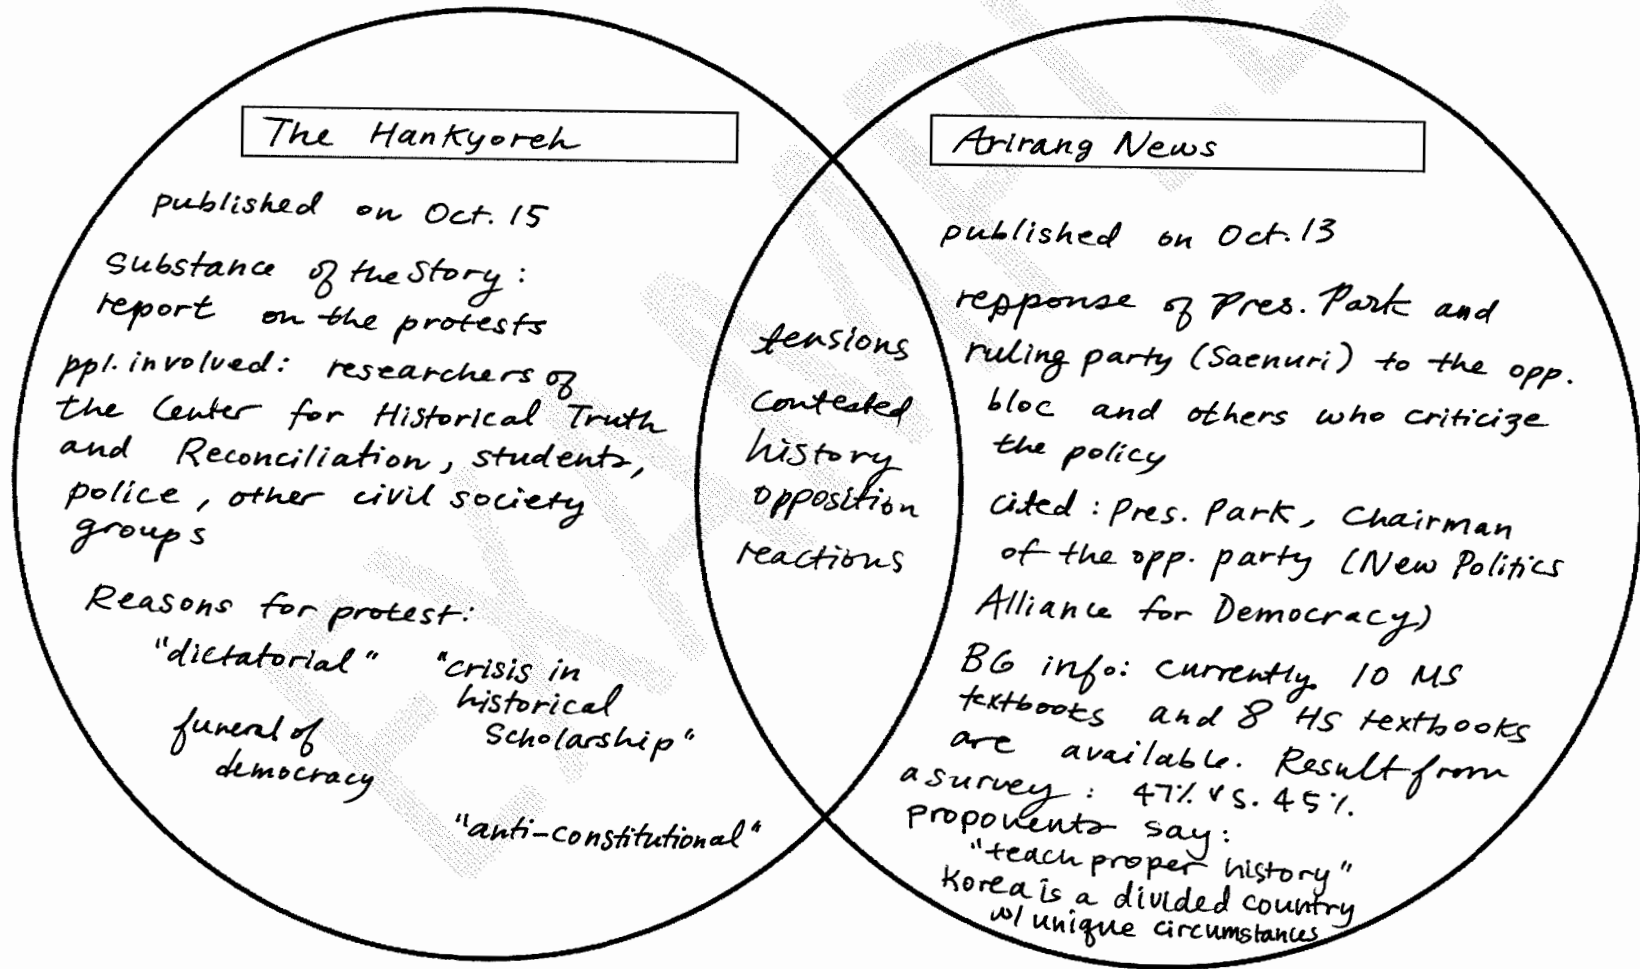 The Hankyoreh
published on Oct. 15
Substance of the Story :
report on the protests
ppl. involved: researchers of
the Center for Historical Truth
and Reconciliation, students,
police, other civil society
groups
Reasons for protest:
"dictatorial"
"crisis in
historical
Scholarship"
funeral of
democracy
"anti-constitutional"
tensions
contested
history
opposition
reactions
Arirang News
published on Oct. 13
repponse of Pres. Park and
ruling party (Saenuri) to the opp.
bloc and others who criticize
the policy
cited : Pres. Park, Chairman
of the opp. party (New Politics
Alliance for Democracy)
BG info: Currently 10 MS
textbooks and 8 HS textbooks
are available. Result from
a survey : 47% vs. 45%.
proponents say:
"teach proper history"
Korea is a divided country
w/ unique circumstances
EXAMPLE